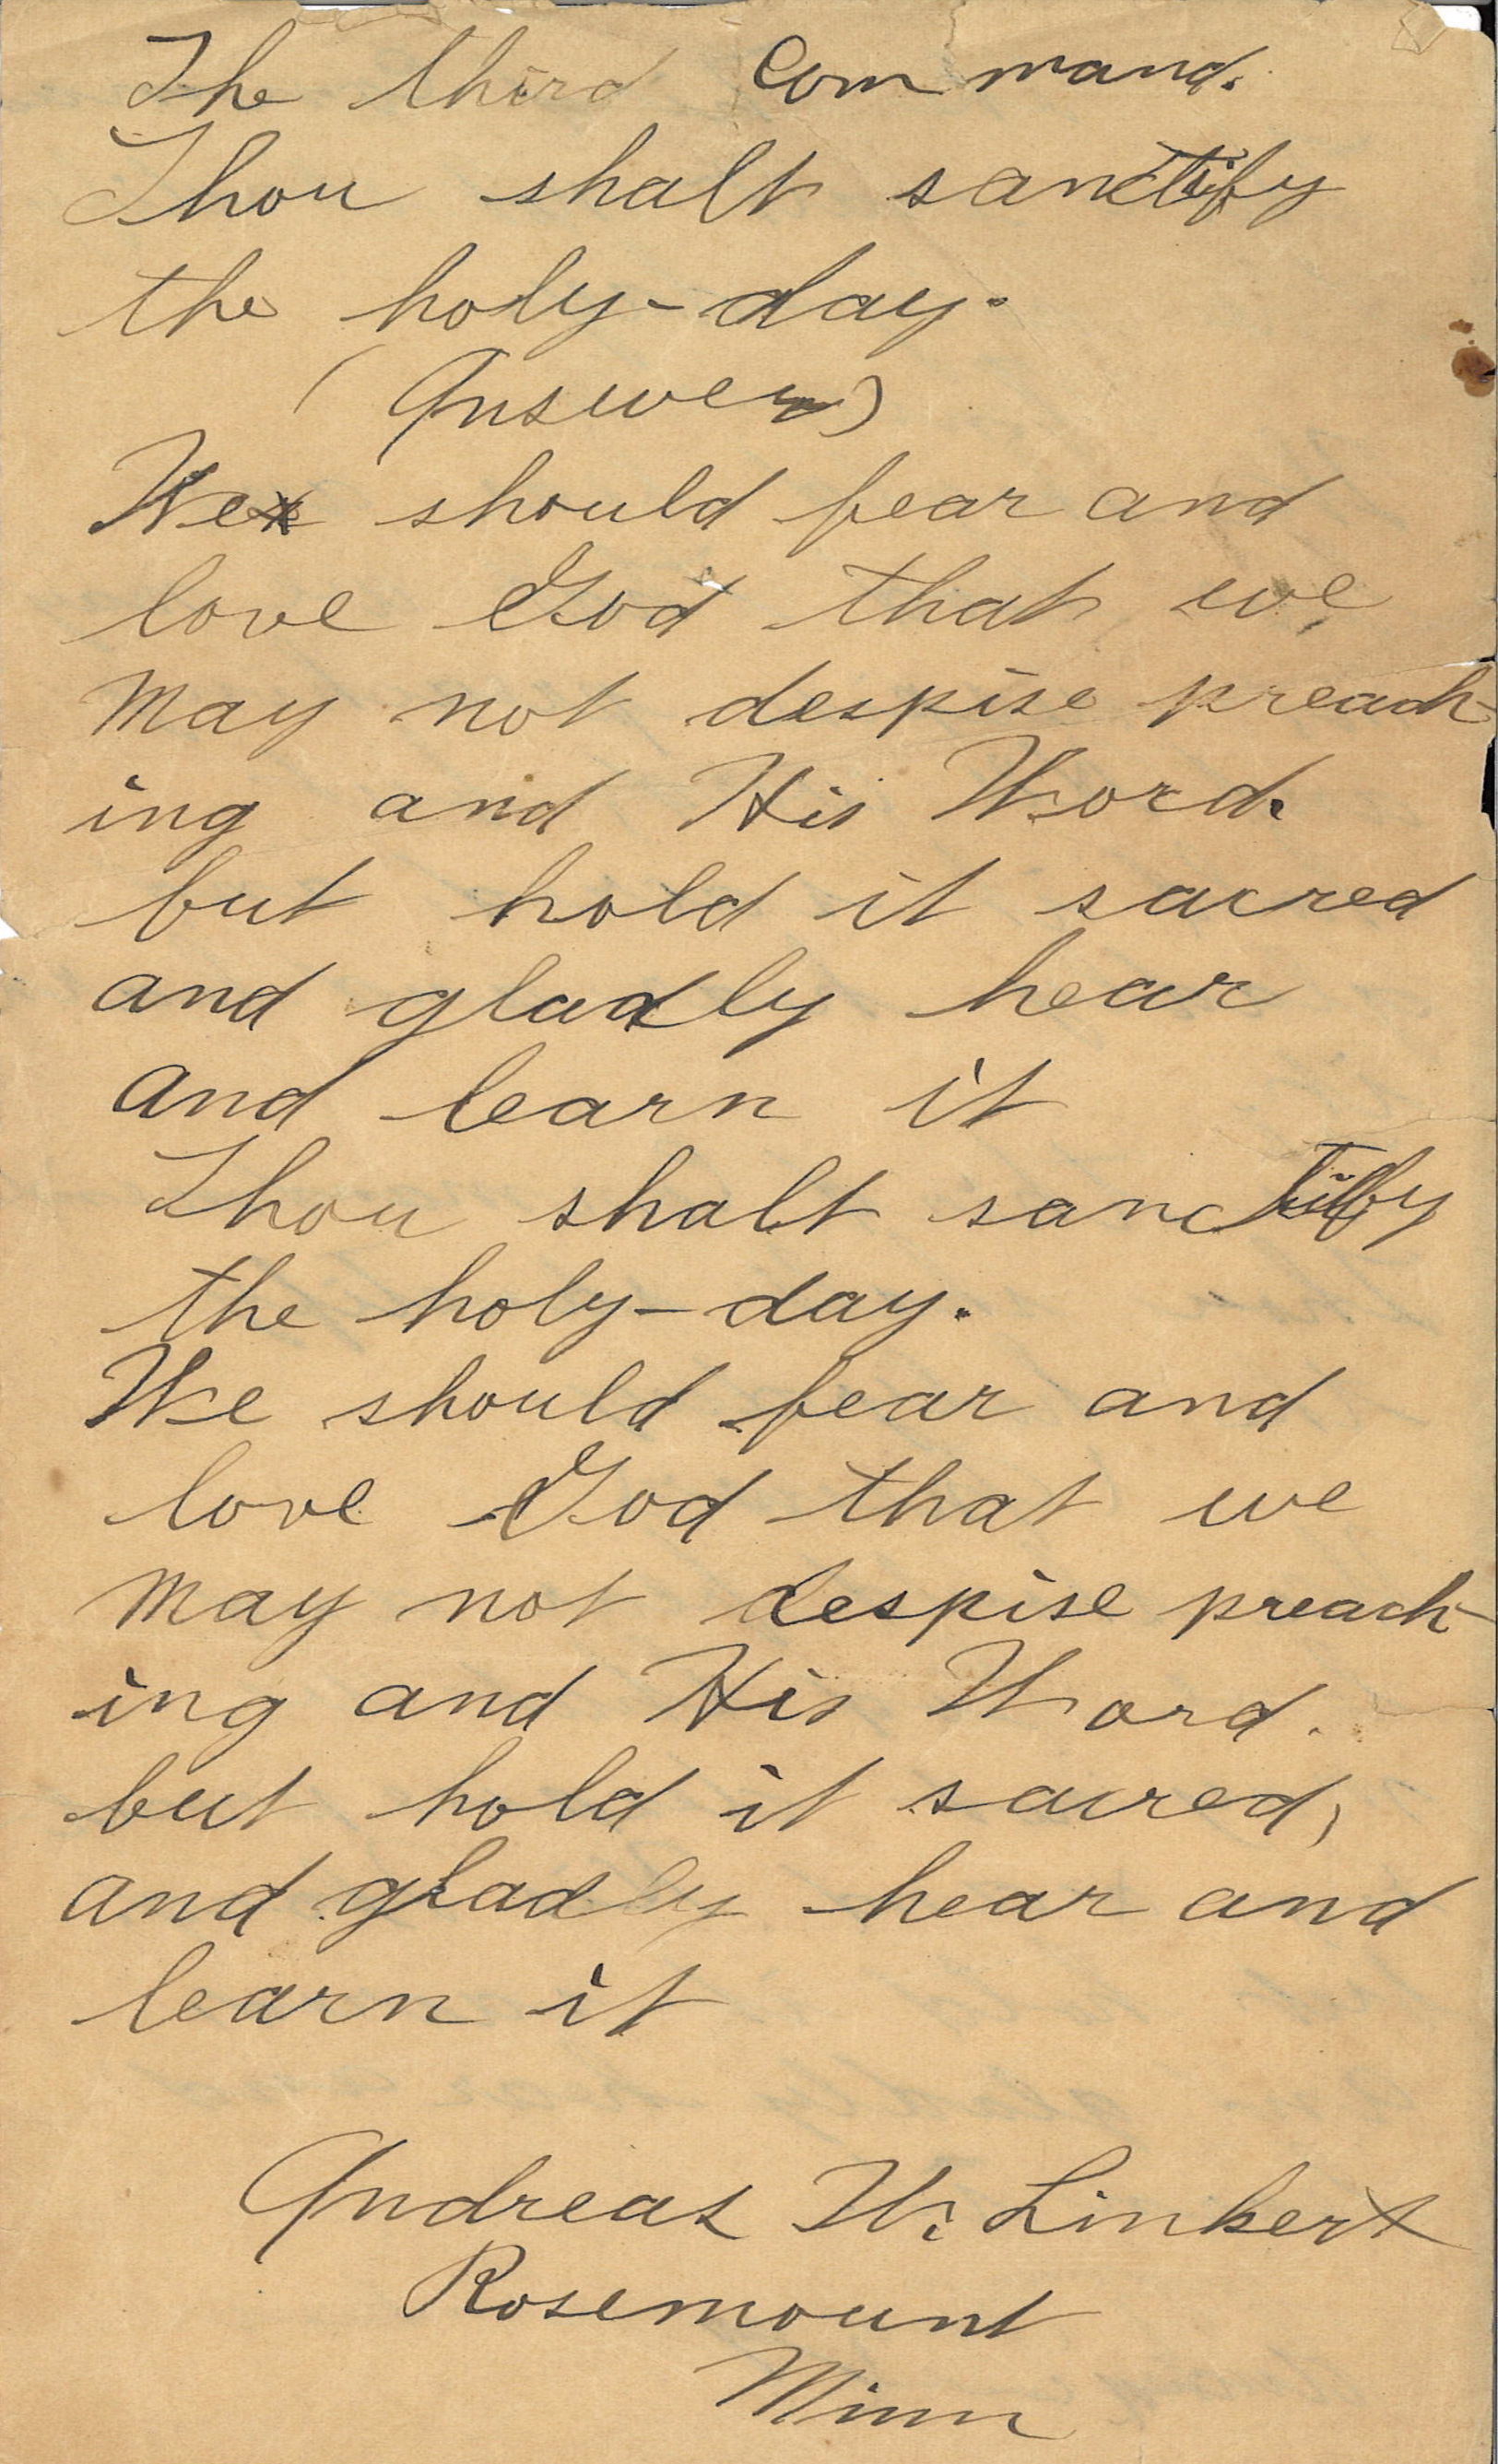 The third Command.
Thou shalt sanctify
the holy-day.
(Answer)
We should fear and
love God that we
may not despise preach-
ing and His Word.
but hold it sacred
and gladly hear
and learn it
Thou shalt sanctify
the holy-day.
We should fear and
love God that we
may not despise preach-
ing and His Word.
but hold it sacred,
and gladly hear and
learn it
Andreas W. Linkert
Rosemount
Minn